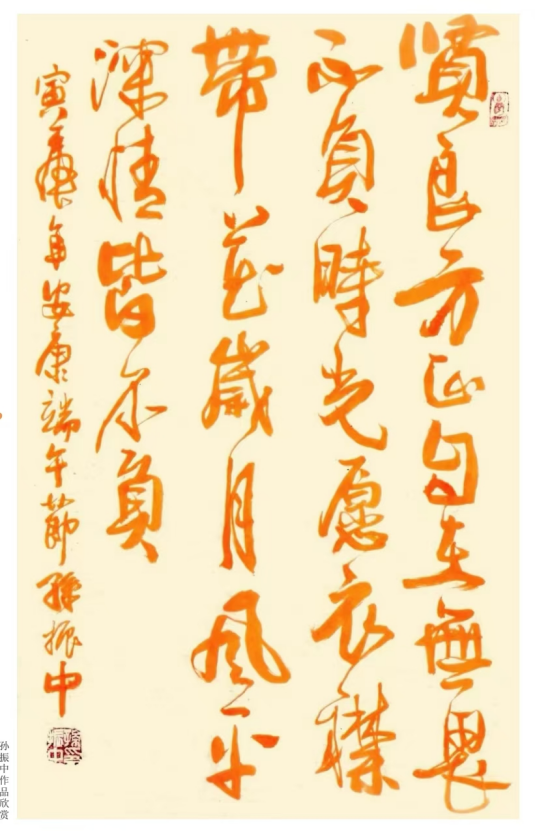 賢良方正自在無畏
不負時光愿衣襟
帶花歲月風平
深情皆不負
寅虎年安康端午節孫振中
孙振中作品欣赏